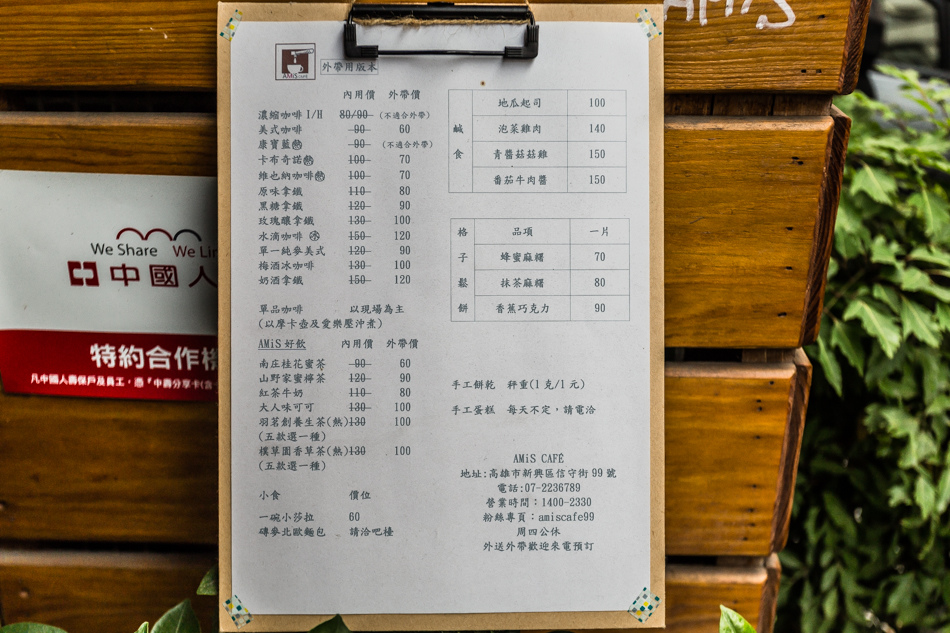 AMiS
AMiS café
外帶用版本
內用價 外帶價
濃縮咖啡 I/H 80/90 (不適合外帶)
美式咖啡 90 60
康寶藍熱 90 (不適合外帶)
卡布奇諾熱 100 70
維也納咖啡熱 100 70
原味拿鐵 110 80
黑糖拿鐵 120 90
玫瑰釀拿鐵 130 100
水滴咖啡 冰 150 120
單一純麥美式 120 90
梅酒冰咖啡 130 100
奶酒拿鐵 150 120
單品咖啡 以現場為主
(以摩卡壺及愛樂壓沖煮)
AMiS好飲 內用價 外帶價
南庄桂花蜜茶 90 60
山野家蜜檸茶 120 90
紅茶牛奶 110 80
大人味可可 130 100
羽茗創養生茶(熱)130 100
(五款選一種)
樸草園香草茶(熱)130 100
(五款選一種)
小食 價位
一碗小莎拉 60
磚麥北歐麵包 請洽吧檯
鹹食
地瓜起司 100
泡菜雞肉 140
青醬菇菇雞 150
番茄牛肉醬 150
格子鬆餅
品項 一片
蜂蜜麻糬 70
抹茶麻糬 80
香蕉巧克力 90
手工餅乾 秤重(1克/1元)
手工蛋糕 每天不定,請電洽
AMiS CAFÉ
地址:高雄市新興區信守街99號
電話:07-2236789
營業時間:1400-2330
粉絲專頁:amiscafe99
周四公休
外送外帶歡迎來電預訂
We Share We Lin
中國人
特約合作機
凡中國人壽保戶及員工,憑「中壽分享卡(含